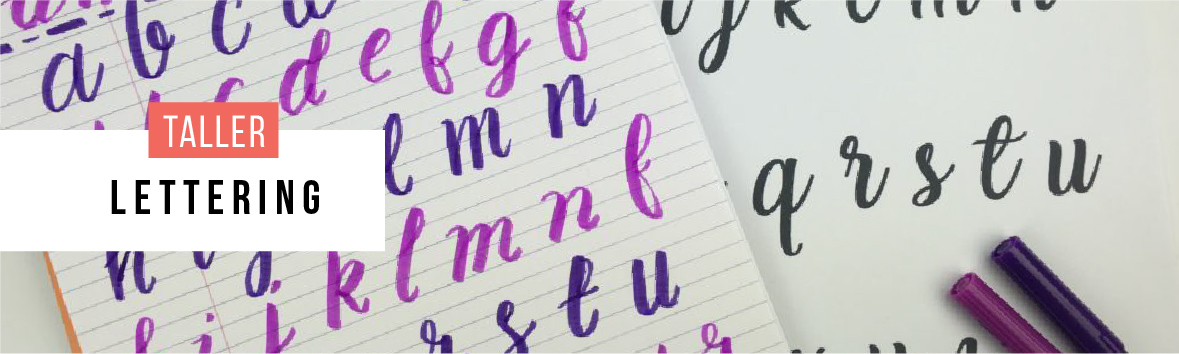 TALLER
LETTERING
a b c
c d e f g f
l m n
h i j k l m n f
r s t u
j k l m n
q r s t u